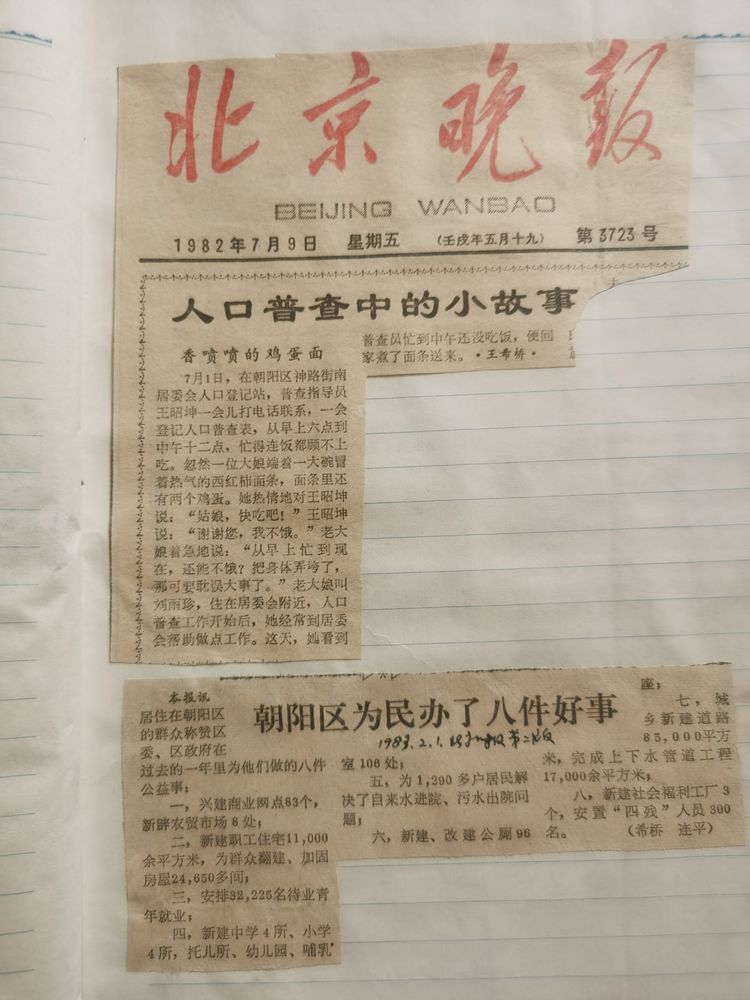 北京晚报
BEIJING WANBAO
1982年7月9日 星期五 (壬戌年五月十九) 第3723号
人口普查中的小故事
香喷喷的鸡蛋面
7月1日，在朝阳区神路街南
居委会人口登记站，普查指导员
王昭坤一会儿打电话联系，一会
登记人口普查表，从早上六点到
中午十二点，忙得连饭都顾不上
吃。忽然一位大娘端着一大碗冒
着热气的西红柿面条，面条里还
有两个鸡蛋。她热情地对王昭坤
说：“姑娘，快吃吧！”王昭坤
说：“谢谢您，我不饿。”老大
娘着急地说：“从早上忙到现
在，还能不饿？把身体弄垮了，
那可要耽误大事了。”老大娘叫
刘雨珍，住在居委会附近，人口
普查工作开始后，她经常到居委
会帮助做点工作。这天，她看到
普查员忙到中午还没吃饭，便回
家煮了面条送来。·王希桥·
朝阳区为民办了八件好事
1983.2.1.
本报讯
居住在朝阳区
的群众称赞区
委、区政府在
过去的一年里为他们做的八件
公益事：
一，兴建商业网点83个，
新辟农贸市场8处；
二，新建职工住宅11,000
余平方米，为群众翻建、加固
房屋24,650多间；
三，安排32,225名待业青
年就业；
四，新建中学4所、小学
4所，托儿所、幼儿园、哺乳
室106处；
五，为1,290多户居民解
决了自来水进院、污水出院问
题；
六，新建、改建公厕96
座；
七，城
乡新建道路
85,000平方
米，完成上下水管道工程
17,000余平方米；
八，新建社会福利工厂3
个，安置“四残”人员300
名。 (希桥 连平)